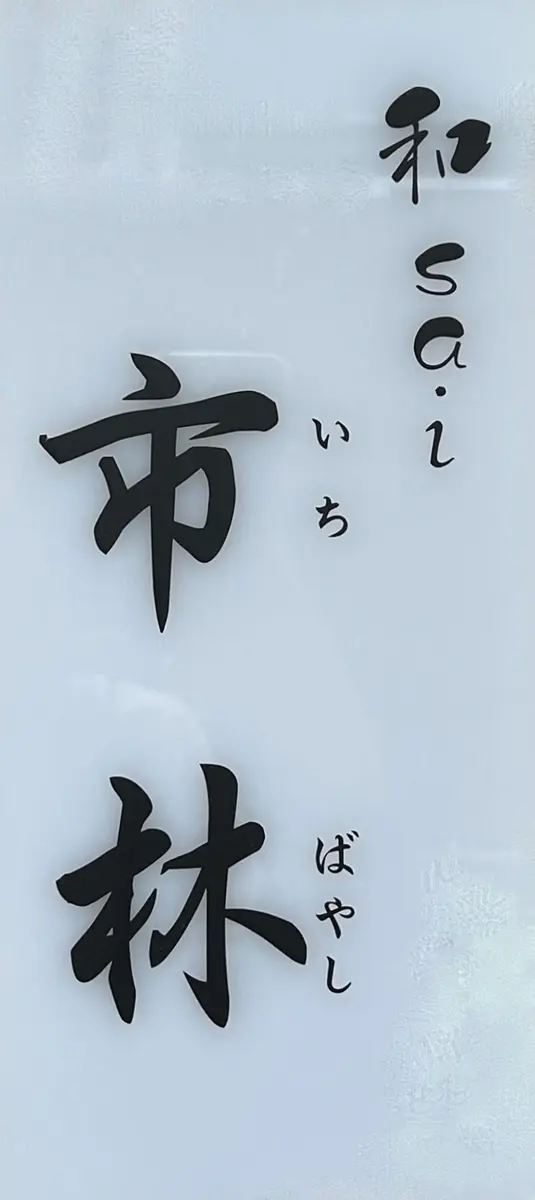 和sa.i
市林
いちばやし